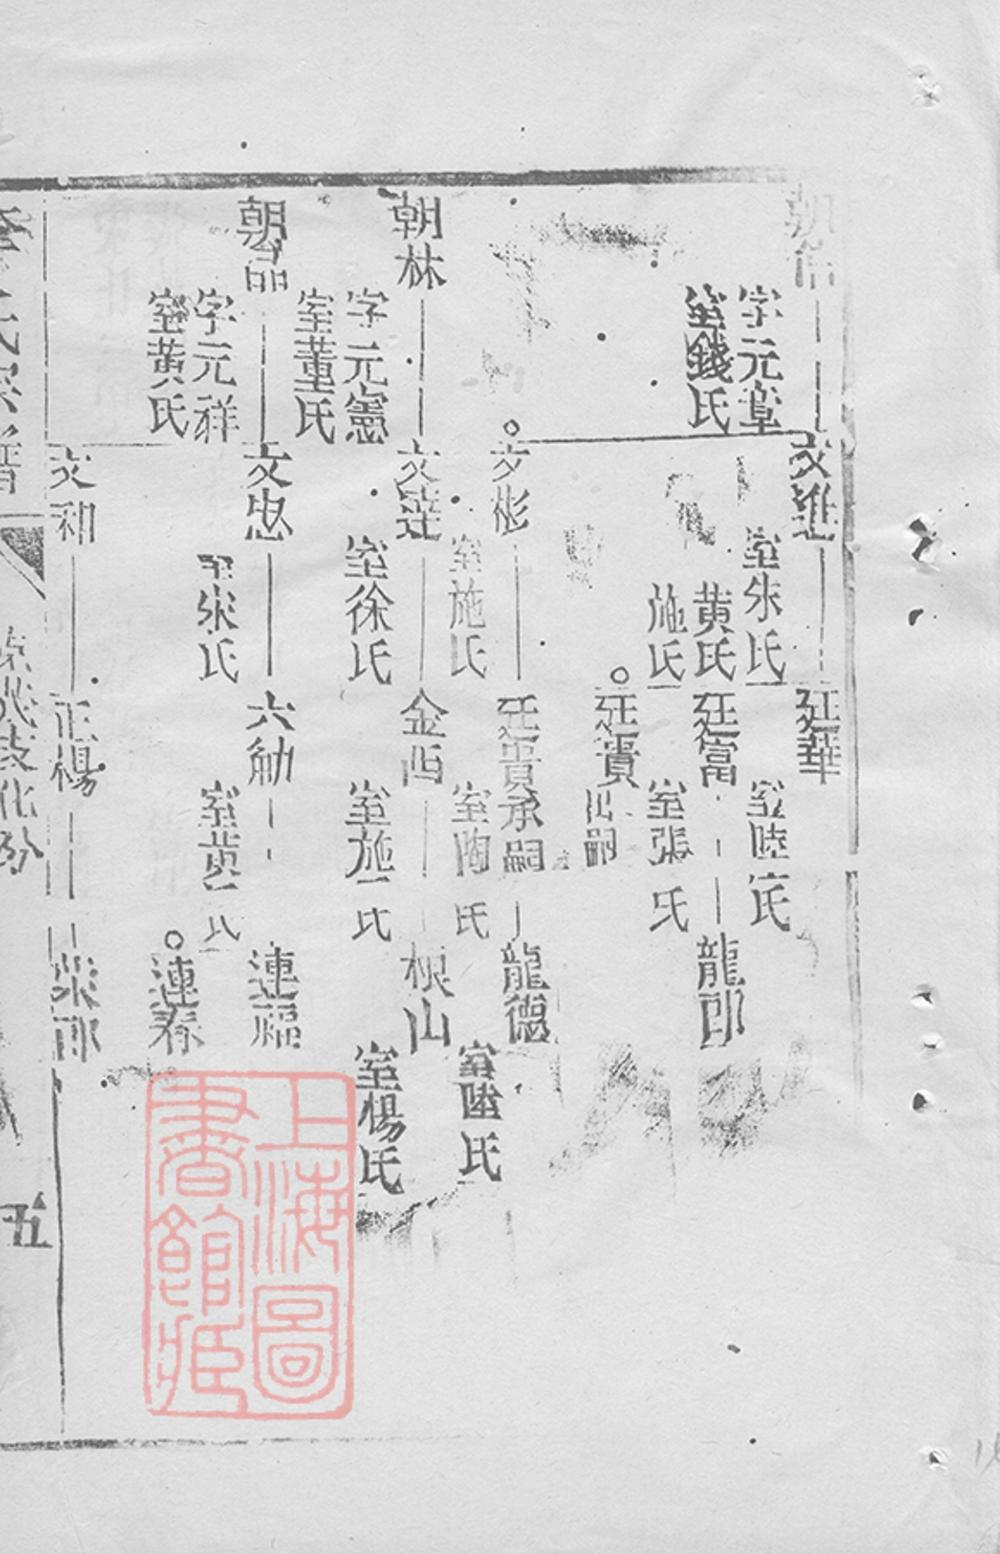 字元章
室錢氏
文進
室朱氏
黄氏
施氏
廷華
室陸氏
廷富
室張氏
龍郎
廷貴
出嗣
文彬
室施氏
廷貴承嗣
室陶氏
龍德
室陸氏
朝林
字元憲
室董氏
文達
室徐氏
金西
室施氏
根山
室楊氏
朝品
字元祥
室黄氏
文忠
室宋氏
六觔
室黄氏
連福
連春
文和
正楊
五
上海圖
書館藏